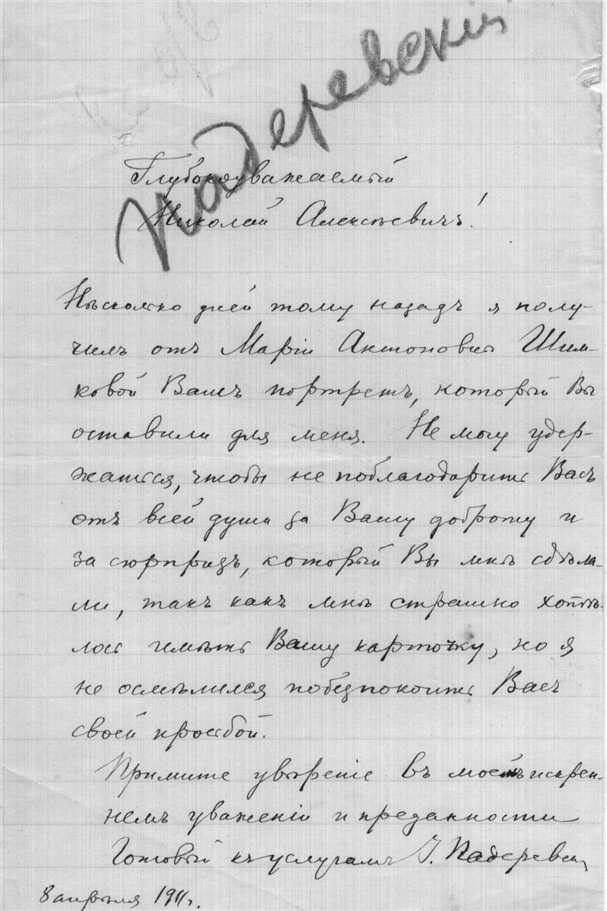 Падеревский
Глубокоуважаемый
Николай Алексѣевичъ!
Нѣсколько дней тому назадъ я полу-
чилъ отъ Маріи Антоновны Шим-
ковой Вашъ портретъ, который Вы
оставили для меня. Не могу удер-
жаться, чтобы не поблагодарить Васъ
отъ всей души за Вашу доброту и
за сюрпризъ, который Вы мнѣ сдѣла-
ли, такъ какъ мнѣ страшно хотѣ-
лось имѣть Вашу карточку, но я
не осмѣлился побезпокоить Васъ
своей просьбой.
Примите увѣреніе въ моемъ искрен-
немъ уваженіи и преданности
Готовый къ услугамъ І. Падеревск
8 апрѣля 1911г.